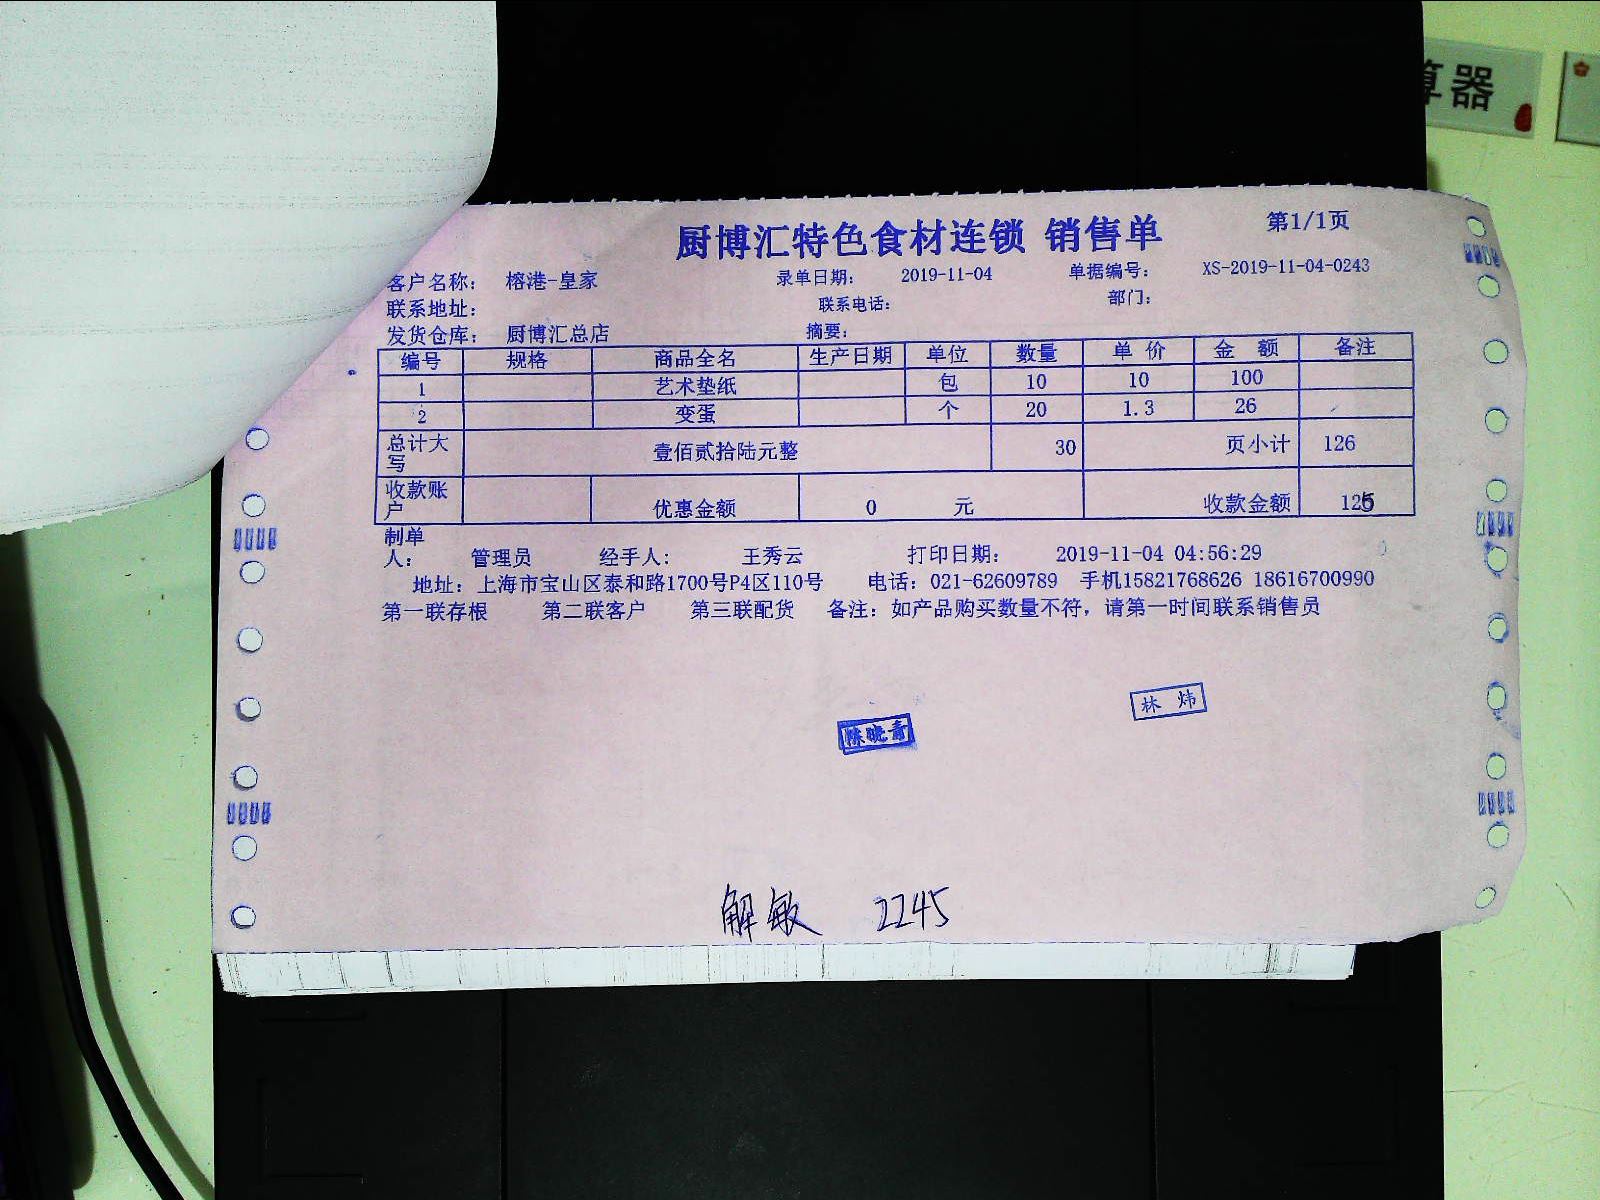 算器
厨博汇特色食材连锁 销售单 第1/1页
客户名称: 榕港-皇家 录单日期: 2019-11-04 单据编号: XS-2019-11-04-0243
联系地址: 联系电话: 部门:
发货仓库: 厨博汇总店 摘要:
编号 规格 商品全名 生产日期 单位 数量 单 价 金 额 备注
1 艺术垫纸 包 10 10 100
2 变蛋 个 20 1.3 26
总计大写 壹佰贰拾陆元整 30 页小计 126
收款账户 优惠金额 0 元 收款金额
制单人: 管理员 经手人: 王秀云 打印日期: 2019-11-04 04:56:29
地址: 上海市宝山区泰和路1700号P4区110号 电话: 021-62609789 手机15821768626 18616700990
第一联存根 第二联客户 第三联配货 备注: 如产品购买数量不符, 请第一时间联系销售员
林 炜
陈晓青
解敏 2245